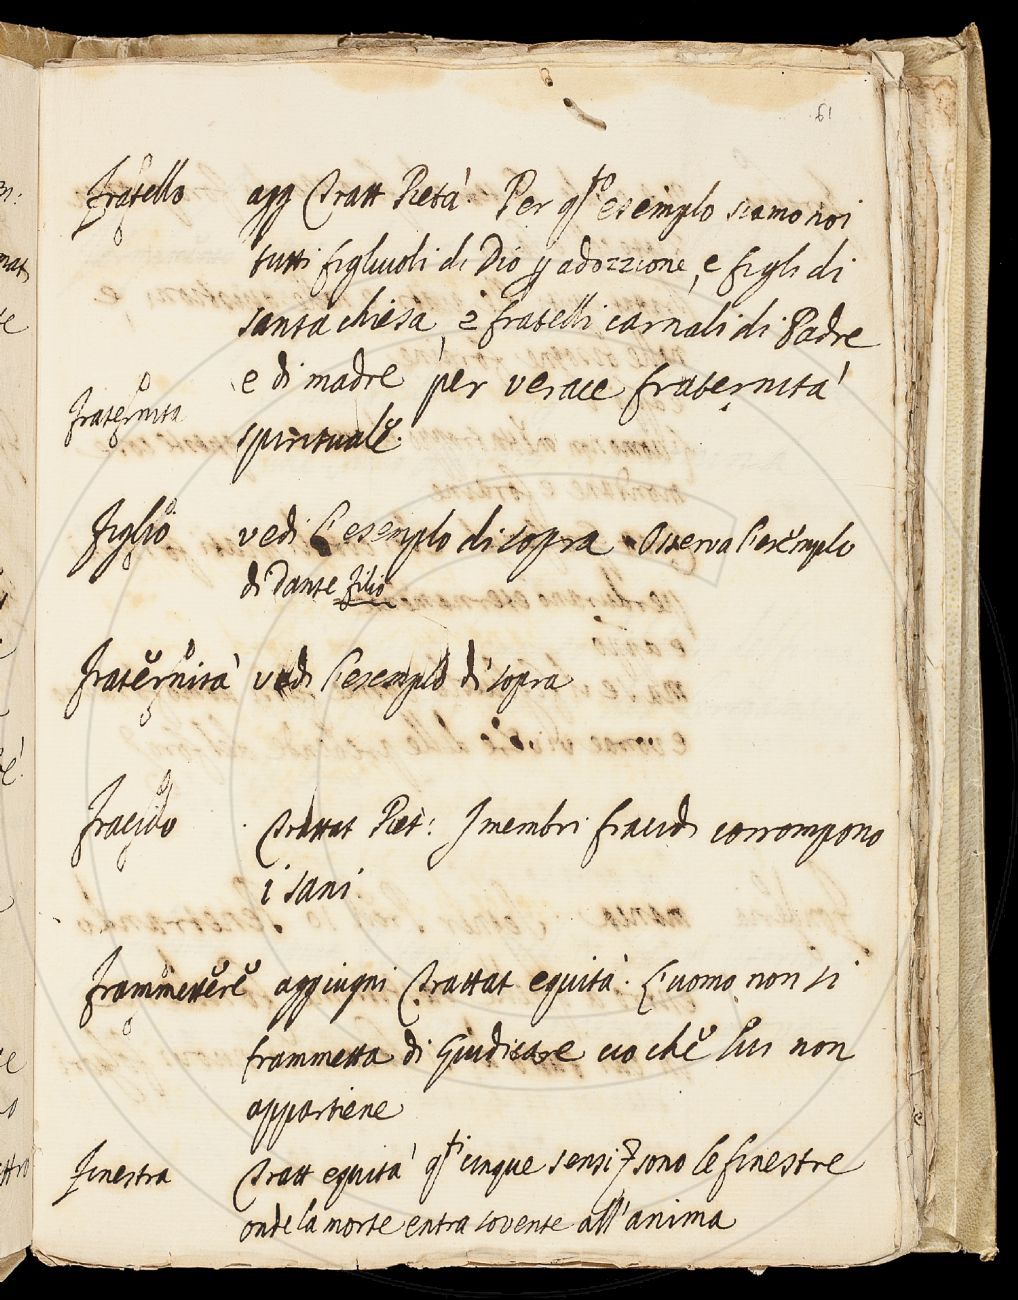 61
Fratello agg Tratt Pietà. Per q.to esemplo siamo noi
tutti figluoli di Dio p adozzione, e figli di
santa chiesa, e fratelli carnali di Padre
e di madre per verace fraternità
Fraternita
spirituale.
Figlio vedi l'esemplo di sopra Osserva l'esemplo
di Dante filio
Fraternità vedi l'esemplo di sopra
Fracido Trattat Piet: I membri fracidi corrompono
i sani
Frammettere aggiugni Trattat equità. L'uomo non si
frammetta di Giudicare cio che a lui non
appartiene
Finestra Tratt equità q.ti cinque sensi sono le finestre
onde la morte entra sovente all'anima